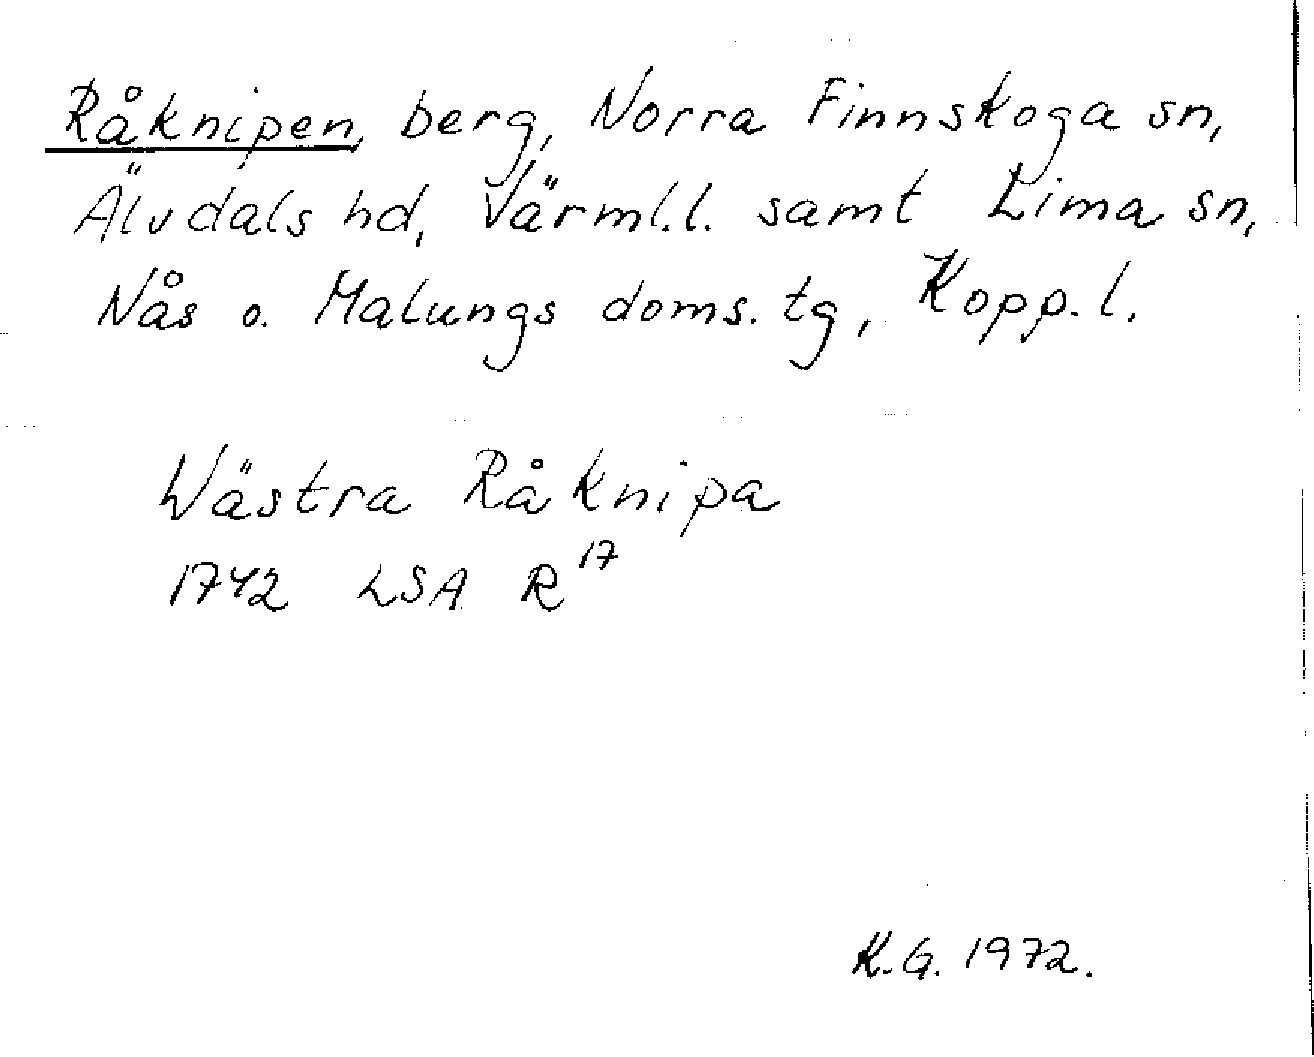 Råknipen, berg, Norra Finnskoga sn,
Älvdals hd, Värml.l. samt Lima sn,
Nås o. Malungs doms. tg, Kopp. l.
Wästra Råknipa
1742 LSA R¹⁷
K.G. 1972.